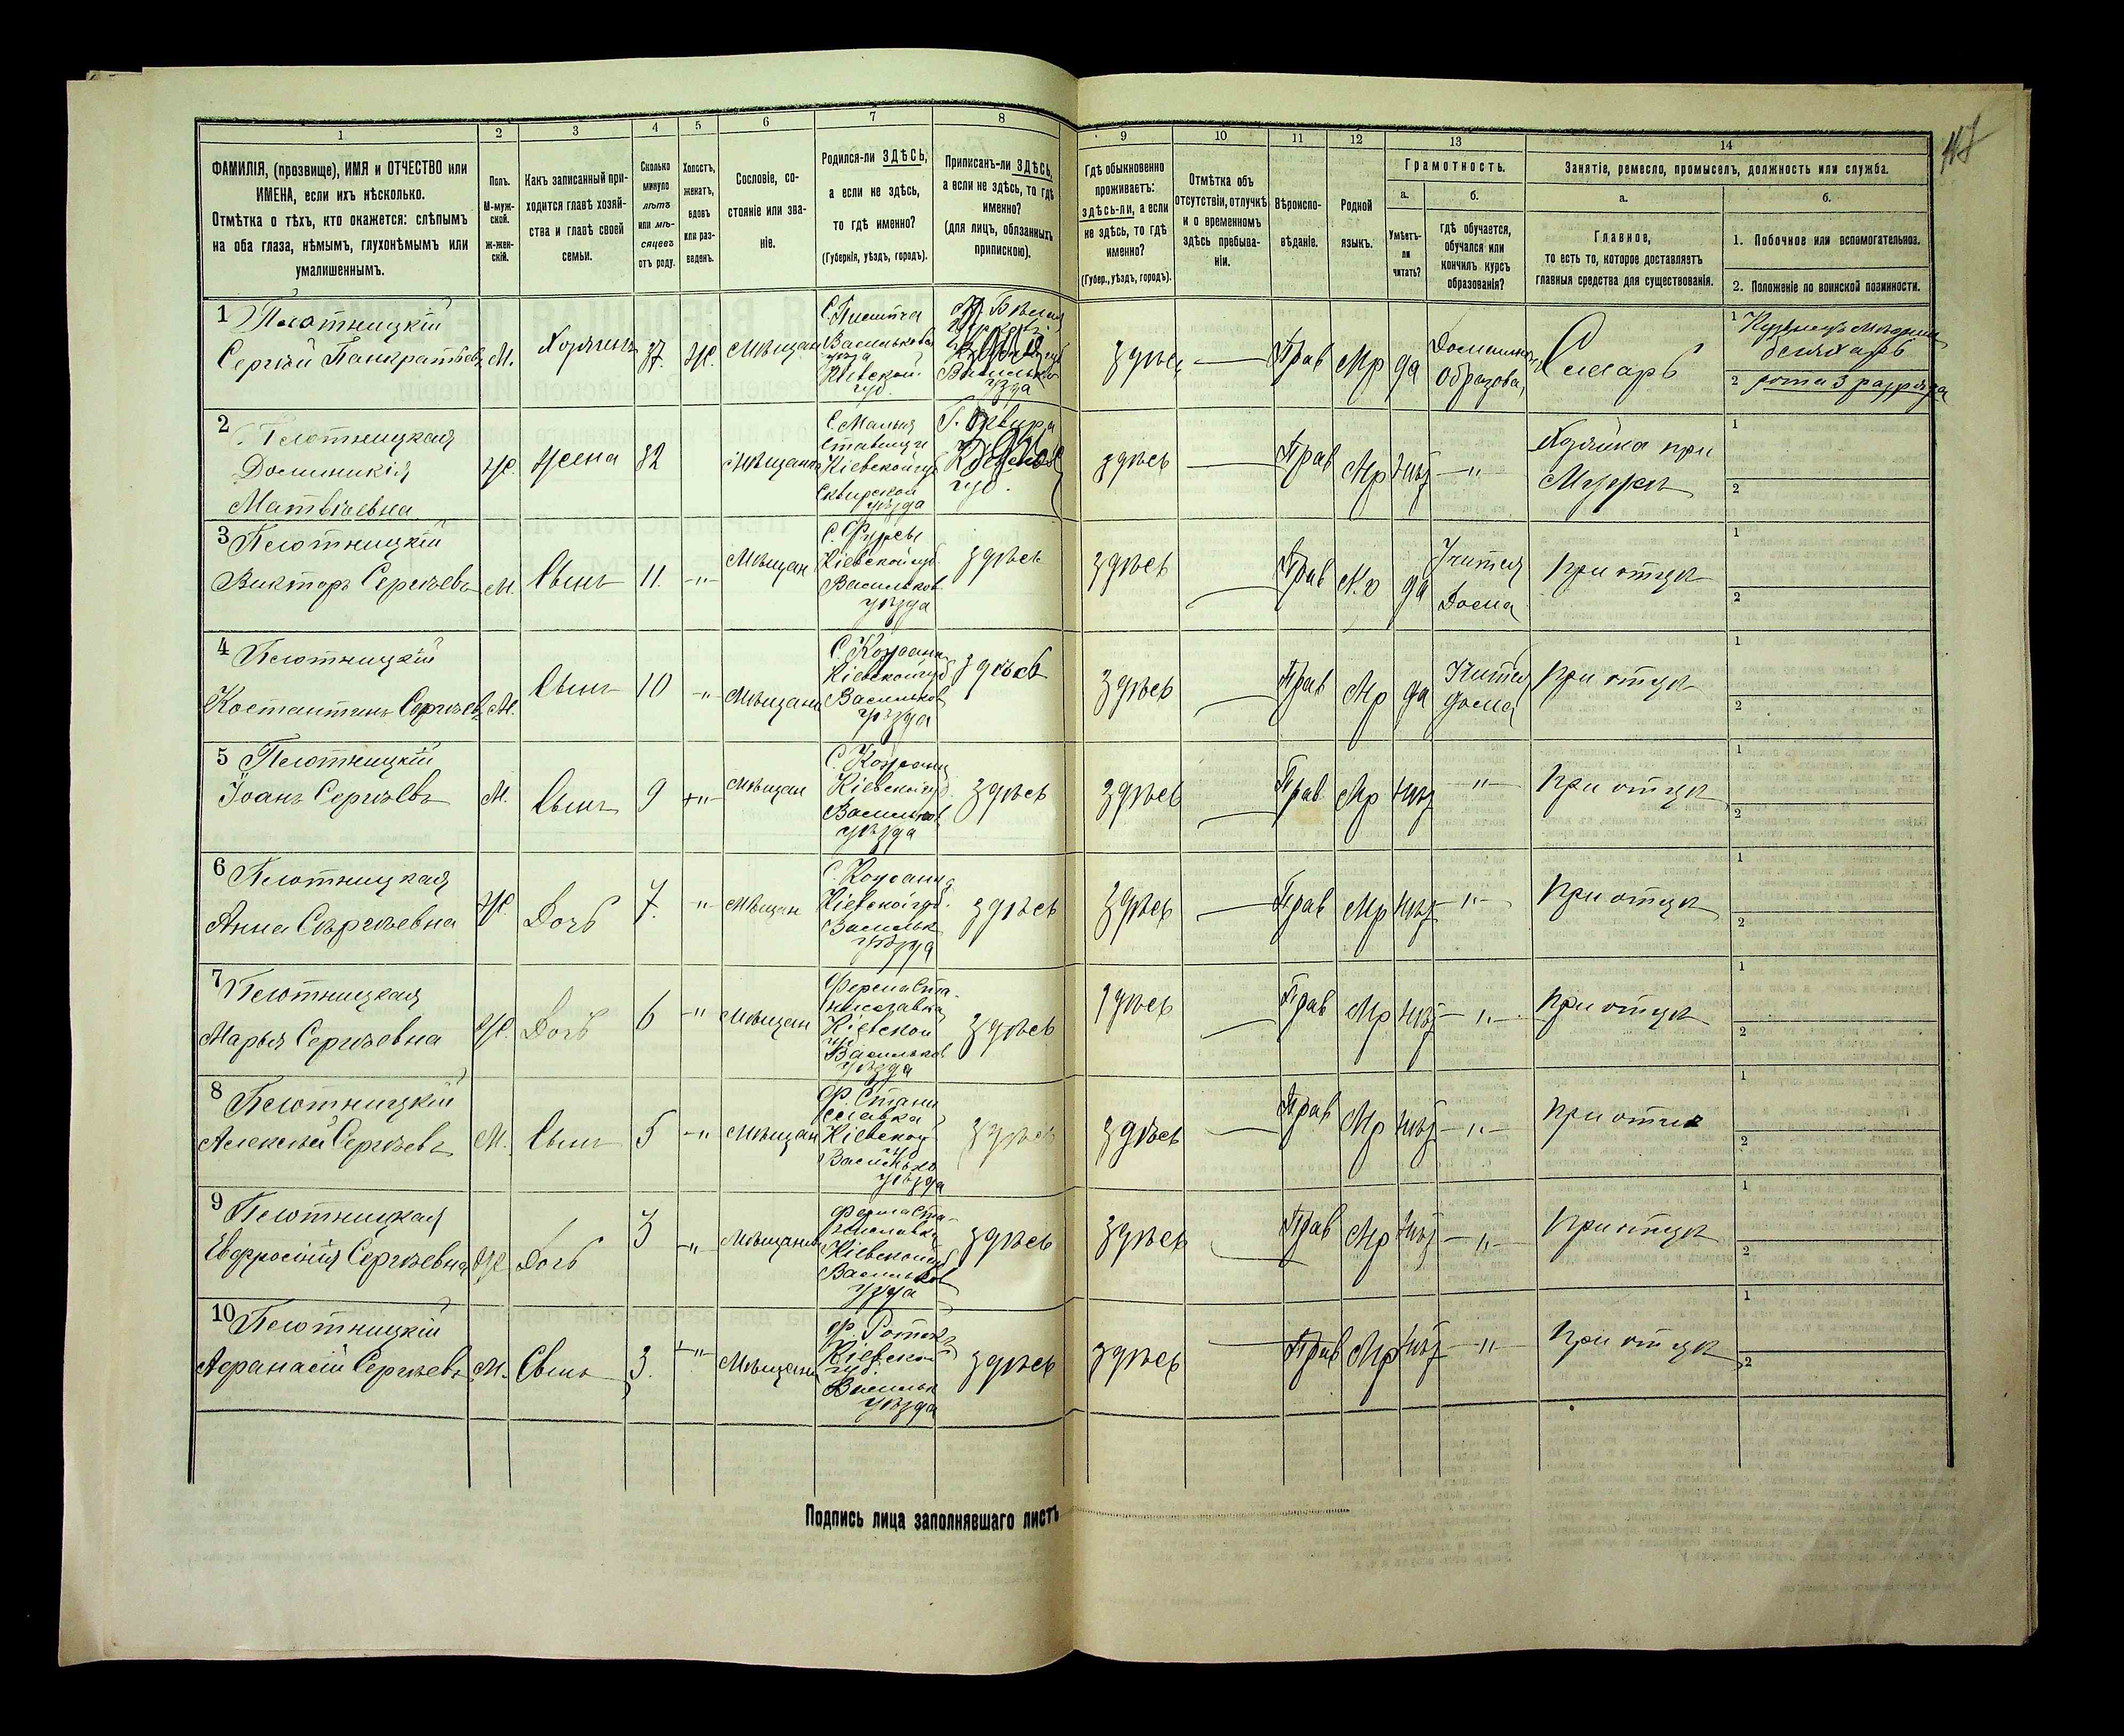 1
2
3
4
5
6
7
8
9
10
11
12
13
14
ФАМИЛІЯ, (прозвище), ИМЯ и ОТЧЕСТВО или
ИМЕНА, если ихъ нѣсколько.
Отмѣтка о тѣхъ, кто окажется: слѣпымъ
на оба глаза, нѣмымъ, глухонѣмымъ или
умалишеннымъ.
Полъ.
М-муж-
ской.
Ж-жен-
скій.
Какъ записанный при-
ходится главѣ хозяй-
ства и главѣ своей
семьи.
Сколько
минуло
лѣтъ
или мѣ-
сяцевъ
отъ роду.
Холостъ,
женатъ,
вдовъ
или раз-
веденъ.
Сословіе, со-
стояніе или зва-
ніе.
Родился-ли ЗДѢСЬ,
а если не здѣсь,
то гдѣ именно?
(Губернія, уѣздъ, городъ).
Приписанъ-ли ЗДѢСЬ,
а если не здѣсь, то гдѣ
именно?
(для лицъ, обязанныхъ
припискою).
Гдѣ обыкновенно
проживаетъ:
здѣсь-ли, а если
не здѣсь, то гдѣ
именно?
(Губер., уѣздъ, городъ).
Отмѣтка объ
отсутствіи, отлучкѣ
и о временномъ
здѣсь пребыва-
ніи.
Вѣроиспо-
вѣданіе.
Родной
языкъ.
Грамотность.
а.
Умѣетъ-
ли
читать?
б.
гдѣ обучается,
обучался или
кончилъ курсъ
образованія?
Занятіе, ремесло, промыселъ, должность или служба.
а.
Главное,
то есть то, которое доставляетъ
главныя средства для существованія.
б.
1. Побочное или вспомогательное.
2. Положеніе по воинской повинности.
1 Плотницкій
Сергѣй Панкратьевъ
М.
Хозяинъ
37.
Ж.
Мѣщан
Васильков
уѣзда
Кіевской
губ.
здѣсь
Прав
Мр
да
Домашнее
Образова
Слесарь
1
2
2 Плотницкая
Доминикія
Матвіевна
Ж.
Жена
32
Мѣщанка
С. Малыя
Ставищи
Кіевской губ
Сквирской
уѣзда
Г. Сквира
здѣсь
Прав
Мр
нѣт
— " —
Хозяйка при
Мужѣ
1
2
3 Плотницкій
Викторъ Сергѣевъ
М.
Сынъ
11.
- " -
Мѣщан
С. Фурсы
Кіевской губ.
Васильков
уѣзда
здѣсь
здѣсь
Прав
Мр
да
Учится
Дома
При отцѣ
1
2
4 Плотницкій
Костантинъ Сергѣевъ
М.
Сынъ
10
- "
Мѣщанин
С. Кожанки
Кіевской губ
Васильков
уѣзда
здѣсь
здѣсь
Прав
Мр
да
Учится
дома
При отцѣ
1
2
5 Плотницкій
Іоанъ Сергѣевъ
М.
Сынъ
9
- " -
Мѣщан
С. Кожанки
Кіевской губ.
Васильков
уѣзда
здѣсь
здѣсь
Прав
Мр
нѣт
— " —
При отцѣ
1
2
6 Плотницкая
Анна Сергѣевна
Ж.
Дочь
7.
- " -
Мѣщан
С. Кожанки
Кіевской губ.
Васильк
уѣзда
здѣсь
здѣсь
Прав
Мр
нѣт
— " —
При отцѣ
1
2
7 Плотницкая
Марья Сергѣевна
Ж.
Дочь
6
- "
Мѣщан
Ферма Ста-
ниславка
Кіевской
губ
Васильков
уѣзда
здѣсь
здѣсь
Прав
Мр
нѣт
— " —
При отцѣ
1
2
8 Плотницкій
Алексѣй Сергѣевъ
М.
Сынъ
5
- "
Мѣщан
ф. Стани
славка
Кіевской
губ
Васильков
уѣзда
здѣсь
здѣсь
Прав
Мр
нѣт
— " —
При отцѣ
1
2
9 Плотницкая
Евфросинія Сергѣевна
Ж
Дочь
3
- "
Мѣщанин
Ферма Ста-
ниславка
Кіевской губ
Васильков
уѣзда
здѣсь
здѣсь
Прав
Мр
нѣт
— " —
При отцѣ
1
2
10 Плотницкій
Афанасій Сергѣевъ
М.
Сынъ
3.
- " -
Мѣщанин
Кіевской
губ.
Васильк
уѣзда
здѣсь
здѣсь
Прав
Мр
нѣт
— " —
При отцѣ
1
2
Подпись лица заполнявшаго листъ